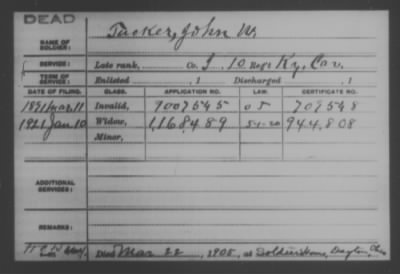 DEAD
NAME OF SOLDIER: Tucker, John W.
SERVICE: Late rank, Co. I 10 Reg't Ky. Cav.
TERM OF SERVICE: Enlisted , 1 Discharged , 1
DATE OF FILING. CLASS. APPLICATION NO. LAW. CERTIFICATE NO.
1891 Mar 11 Invalid, 7007545 05 709548
1921 Jan 10 Widow, 1,168489 54-20 944,808
Minor,
ADDITIONAL SERVICES:
REMARKS:
Died Mar 22, 1905, at Soldiers Home, Dayton, Ohio